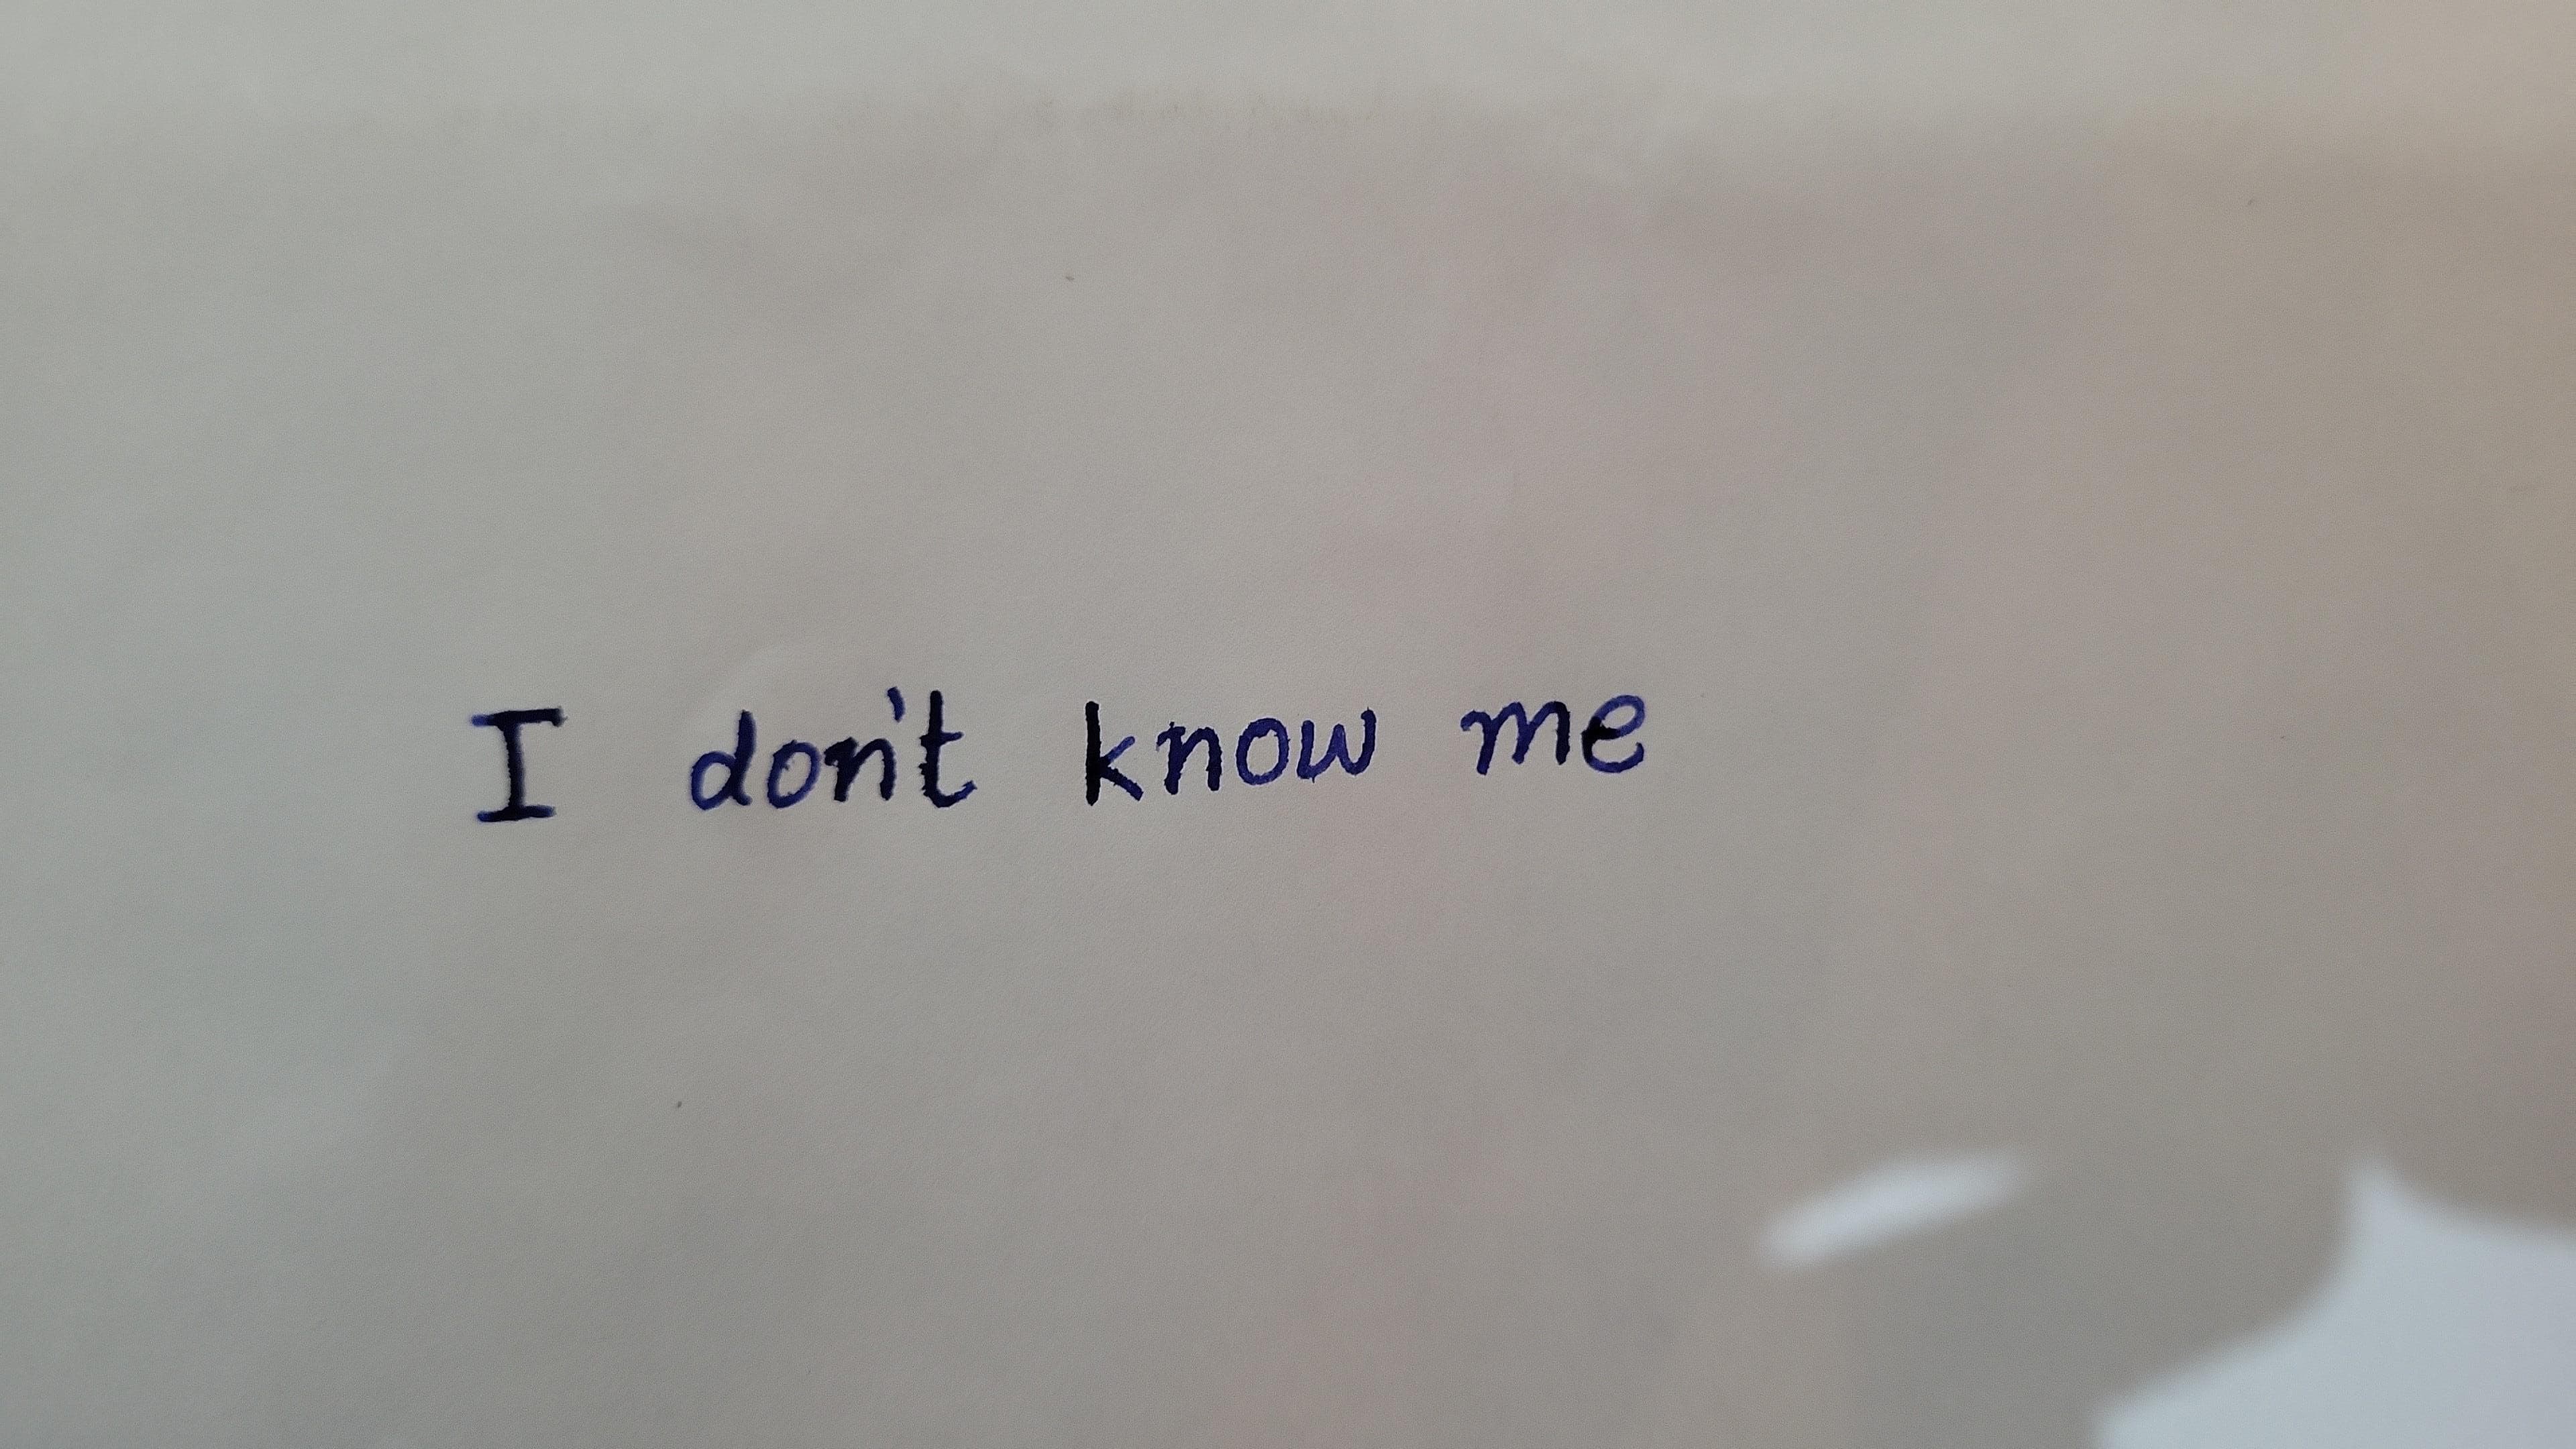 I don't know me